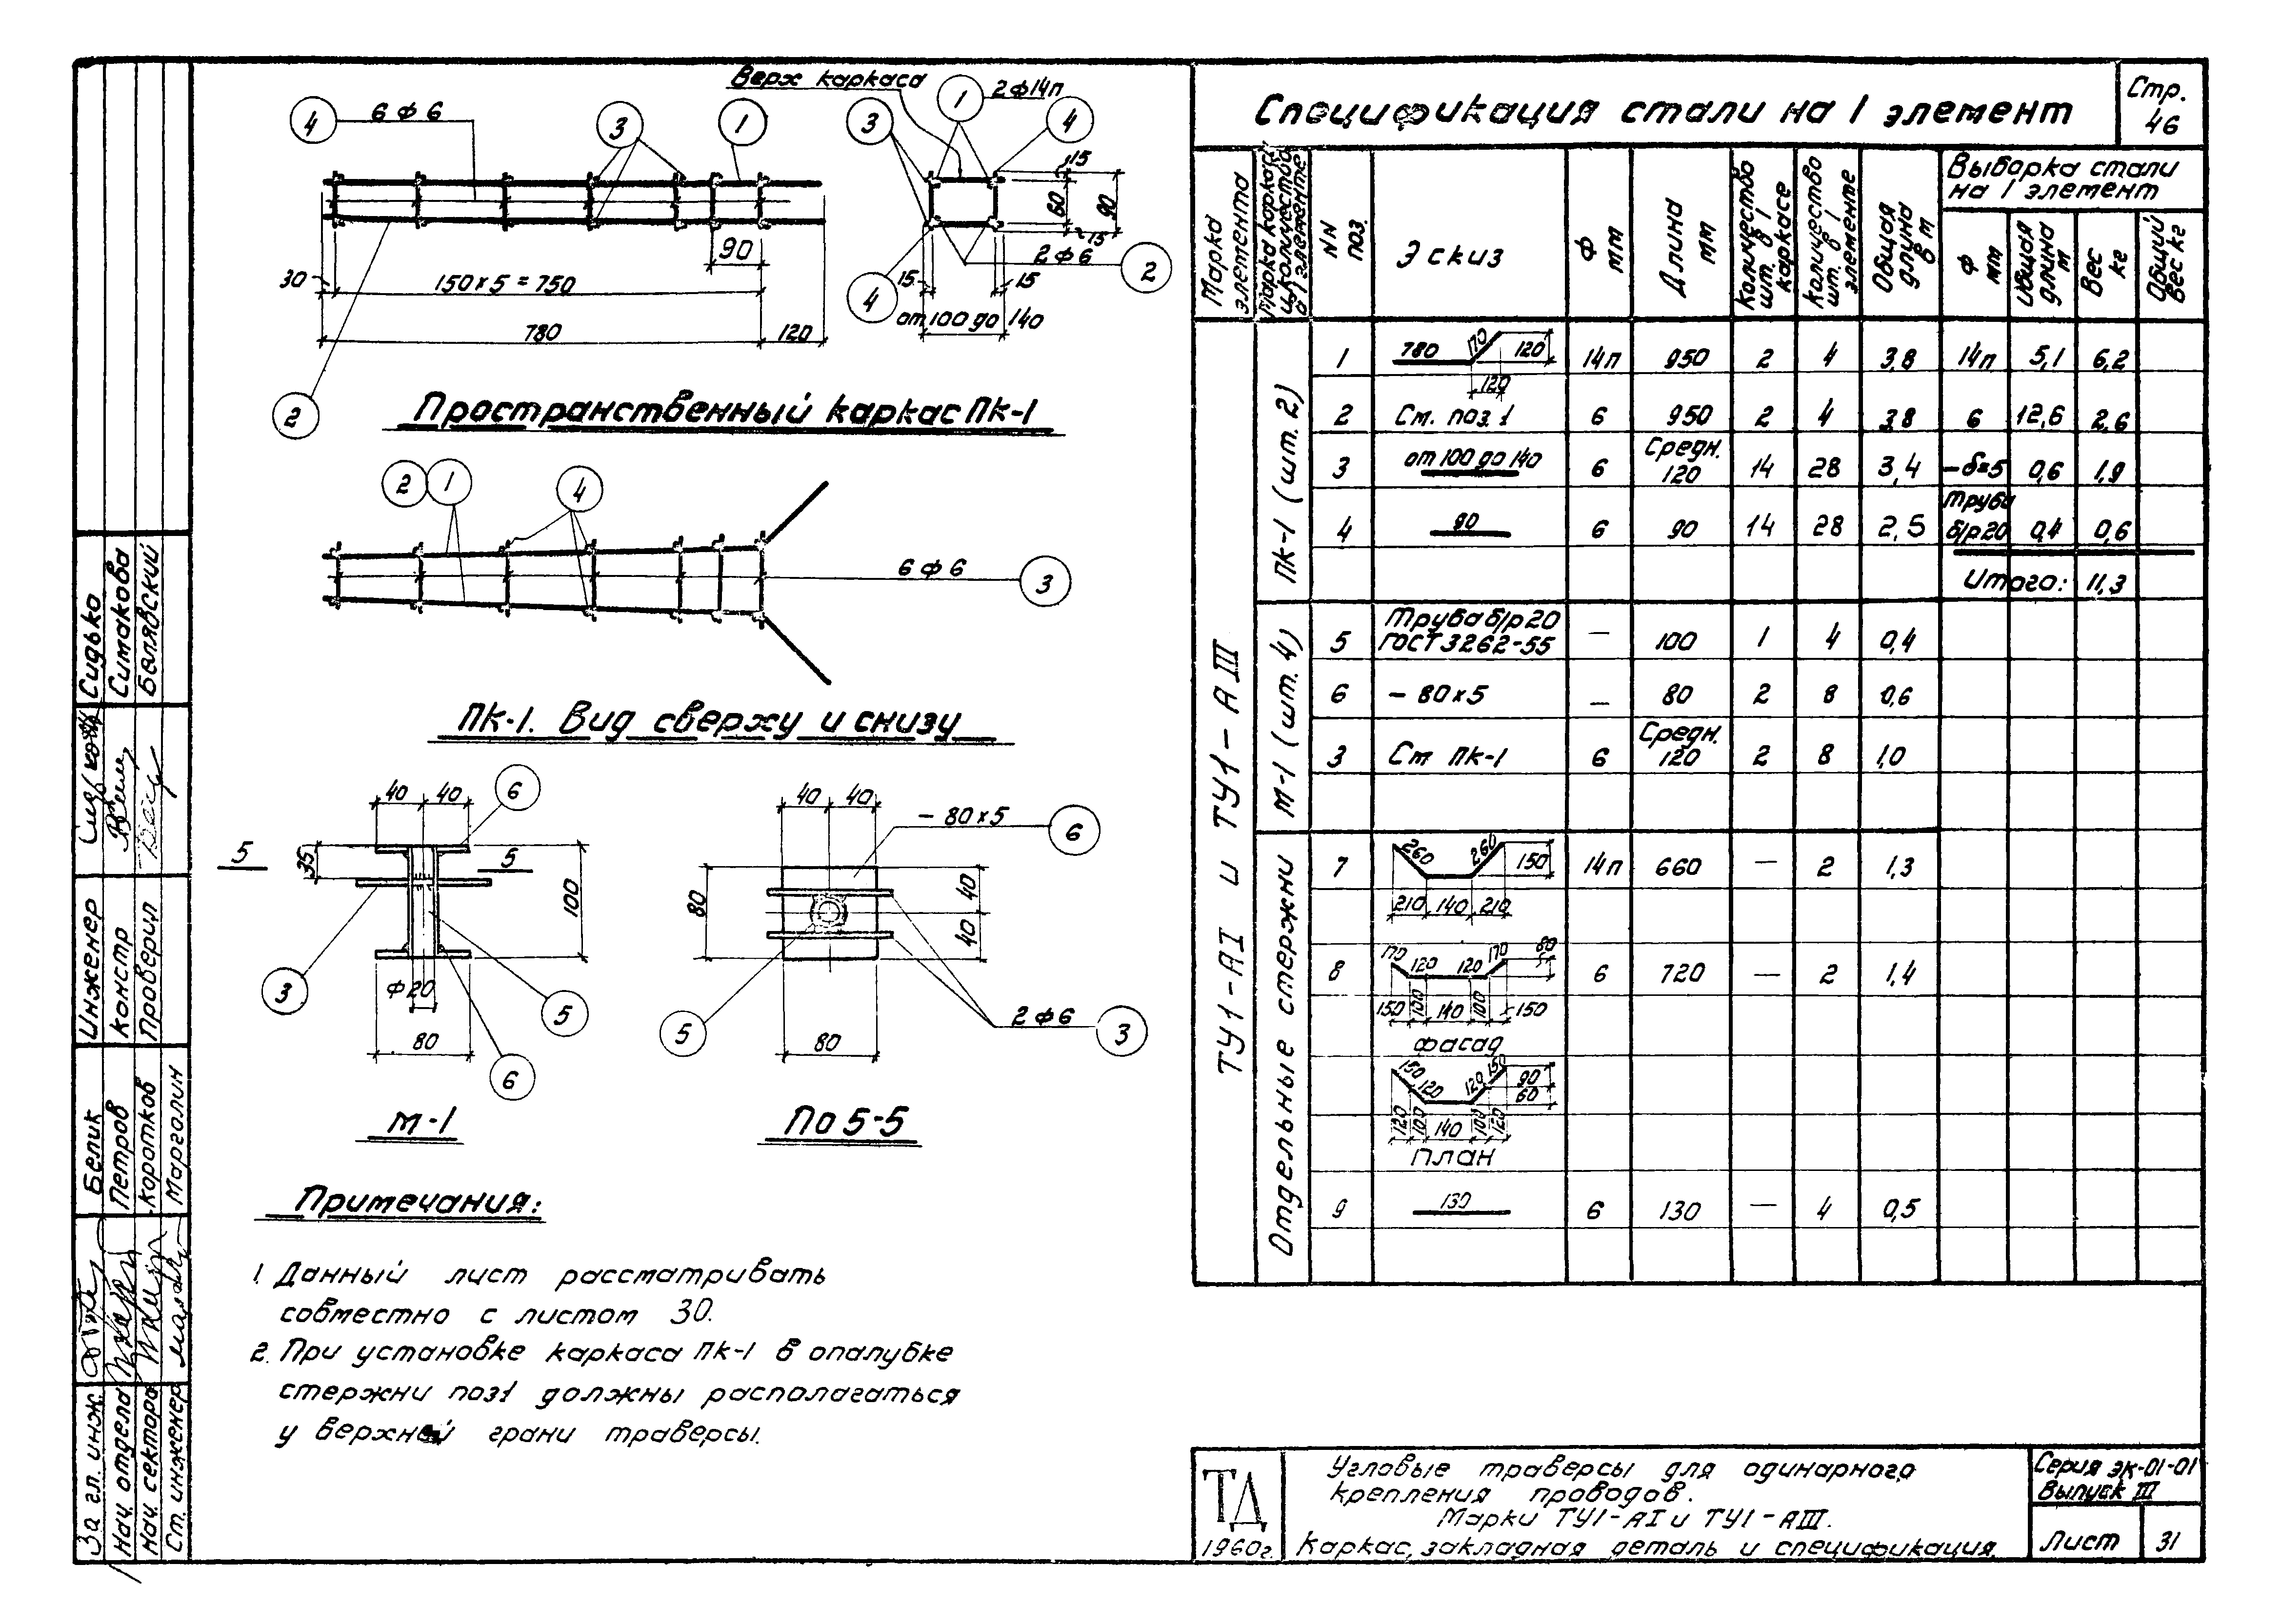 Верх каркаса
4
6 ф 6
3
1
3
1
2ф14п
4
15
60
90
15
2ф6
2
4
15
15
от 100 до 140
90
30
150×5 = 750
780
120
2
Пространственный каркас ПК-1
2
1
4
6 ф 6
3
ПК-1. Вид сверху и снизу
40
40
6
5
5
35
100
3
ф20
5
80
6
М-1
40
40
- 80×5
6
80
40
40
5
2ф6
3
80
По 5-5
Примечания:
1. Данный лист рассматривать
совместно с листом 30.
2. При установке каркаса ПК-1 в опалубке
стержни поз1 должны располагаться
у верхней грани траверсы.
Спецификация стали на 1 элемент
Стр.
46
Марка элемента
Марка каркаса и количество в 1 элементе
NN поз.
Эскиз
Ф мм
Длина мм
Количество шт. в 1 каркасе
Количество шт. в 1 элементе
Общая длина в м
Выборка стали
на 1 элемент
Ф мм
Общая длина м
Вес кг
Общий вес кг
ТУ1-АI и ТУ1-АIII
ПК-1 (шт. 2)
1 780 170 120 120 14п 950 2 4 3,8 14п 5,1 6,2
2 См. поз. 1 6 950 2 4 3,8 6 12,6 2,6
3 от 100 до 140 6 Средн. 120 14 28 3,4 -δ=5 0,6 1,9
4 90 6 90 14 28 2,5 Труба б/р20 0,4 0,6
Итого: 11,3
М-1 (шт. 4)
5 Труба б/р 20 ГОСТ 3262-55 — 100 1 4 0,4
6 - 80×5 — 80 2 8 0,6
3 См ПК-1 6 Средн. 120 2 8 1,0
Отдельные стержни
7 260 260 150 14п 660 — 2 1,3
210 140 210
8 170 120 120 170 80 6 720 — 2 1,4
150 100 140 100 150
фасад
150 120 120 150 90 60
120 100 140 100 120
план
9 130 6 130 — 4 0,5
ТД
1960г.
Угловые траверсы для одинарного
крепления проводов.
Марки ТУ1-АI и ТУ1-АIII.
Каркас, закладная деталь и спецификация.
Серия ЭК-01-01
Выпуск III
Лист
31
Сидько
Симакова
Белявский
Инженер
Констр
Проверил
Белик
Петров
Коротков
Марголин
За гл. инж.
Нач. отдела
Нач. сектора
Ст. инженер